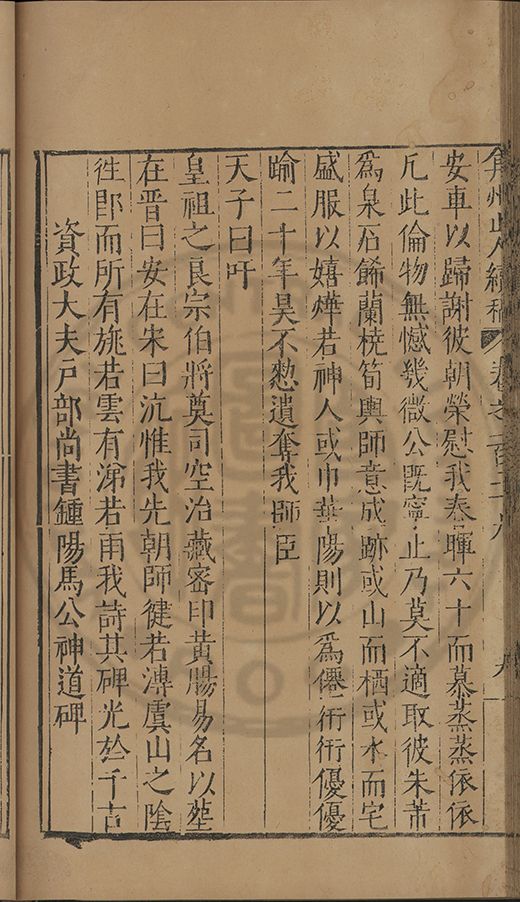 弇州山人續稿 卷之一百二八 九
安車以歸謝彼朝榮慰我春暉六十而慕蒸蒸依依
凡此倫物無憾幾微公既寧止乃莫不適取彼朱芾
為泉石餙蘭橈筍輿師意成跡或山而栖或水而宅
盛服以嬉燁若神人或巾華陽則以為僊衎衎優優
踰二十年昊不憗遺奪我師臣
天子曰吁
皇祖之良宗伯將奠司空治藏密印黃腸易名以塟
在晋曰安在宋曰沆惟我先朝師健若溥虞山之陰
徃郎而所有旐若雲有涕若雨我詩其碑光於千古
資政大夫戶部尚書鍾陽馬公神道碑